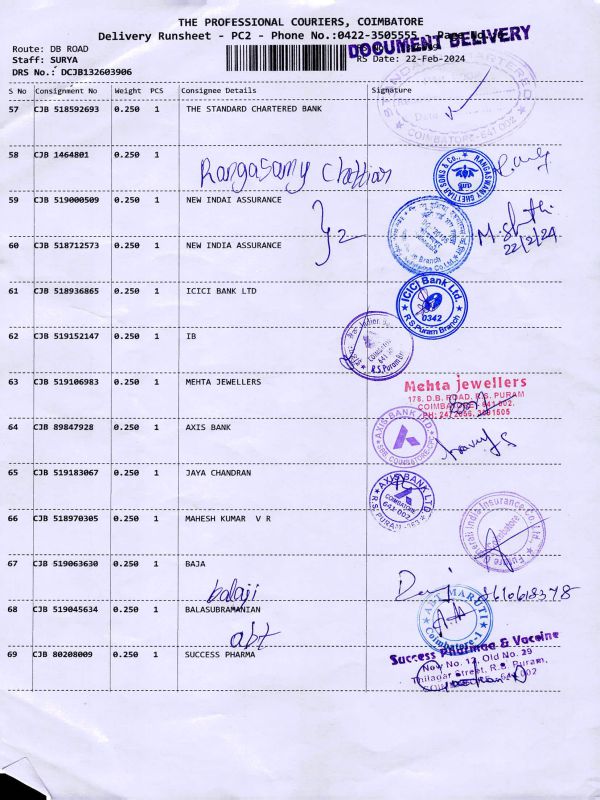 THE PROFESSIONAL COURIERS, COIMBATORE
Delivery Runsheet - PC2 - Phone No.:0422-3505555
Page No.
DOCUMENT DELIVERY
Route: DB ROAD
Staff: SURYA
RS Date: 22-Feb-2024
DRS No.: DCJB132603906
S No Consignment No Weight PCS Consignee Details Signature
57 CJB 518592693 0.250 1 THE STANDARD CHARTERED BANK
COIMBATORE - 641 002
58 CJB 1464801 0.250 1
Rangasamy Chettiar
RANGASWAMY CHETTIAR SONS & Co.
59 CJB 519000509 0.250 1 NEW INDAI ASSURANCE
60 CJB 518712573 0.250 1 NEW INDIA ASSURANCE
22/2/24
61 CJB 518936865 0.250 1 ICICI BANK LTD
ICICI Bank Ltd.
0342
R.S.Puram Branch
62 CJB 519152147 0.250 1 IB
R.S.Puram
63 CJB 519106983 0.250 1 MEHTA JEWELLERS
Mehta jewellers
178, D.B. ROAD, R.S. PURAM
COIMBATORE - 641 002.
64 CJB 89847928 0.250 1 AXIS BANK
AXIS BANK LTD.
65 CJB 519183067 0.250 1 JAYA CHANDRAN
AXIS BANK LTD
COIMBATORE
641 002
R.S. PURAM
66 CJB 518970305 0.250 1 MAHESH KUMAR V R
Future Generali India Insurance Co. Ltd.
Coimbatore
67 CJB 519063630 0.250 1 BAJA
balaji
68 CJB 519045634 0.250 1 BALASUBRAMANIAN
abt
ABT MARUTI
Coimbatore-1
69 CJB 80208009 0.250 1 SUCCESS PHARMA
Success Pharmaa & Vaccine
New No. 12, Old No. 29
Thilagar Street, R.S. Puram,
641 002